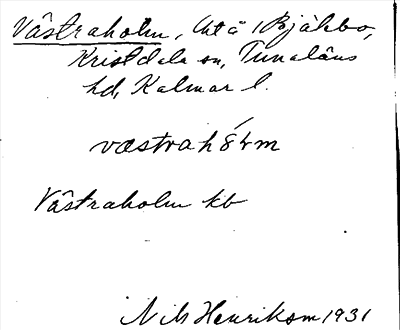 Västraholm, lht å 1 Bjälebo,
Kristdala sn, Tunaläns
hd, Kalmar l.
væstrah8́lm
Västraholm kb
Nils Henrikson 1931